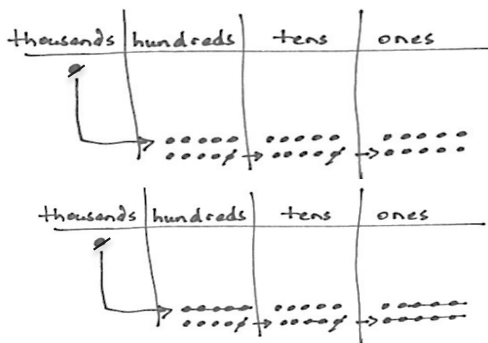 thousands hundreds tens ones
thousands hundreds tens ones